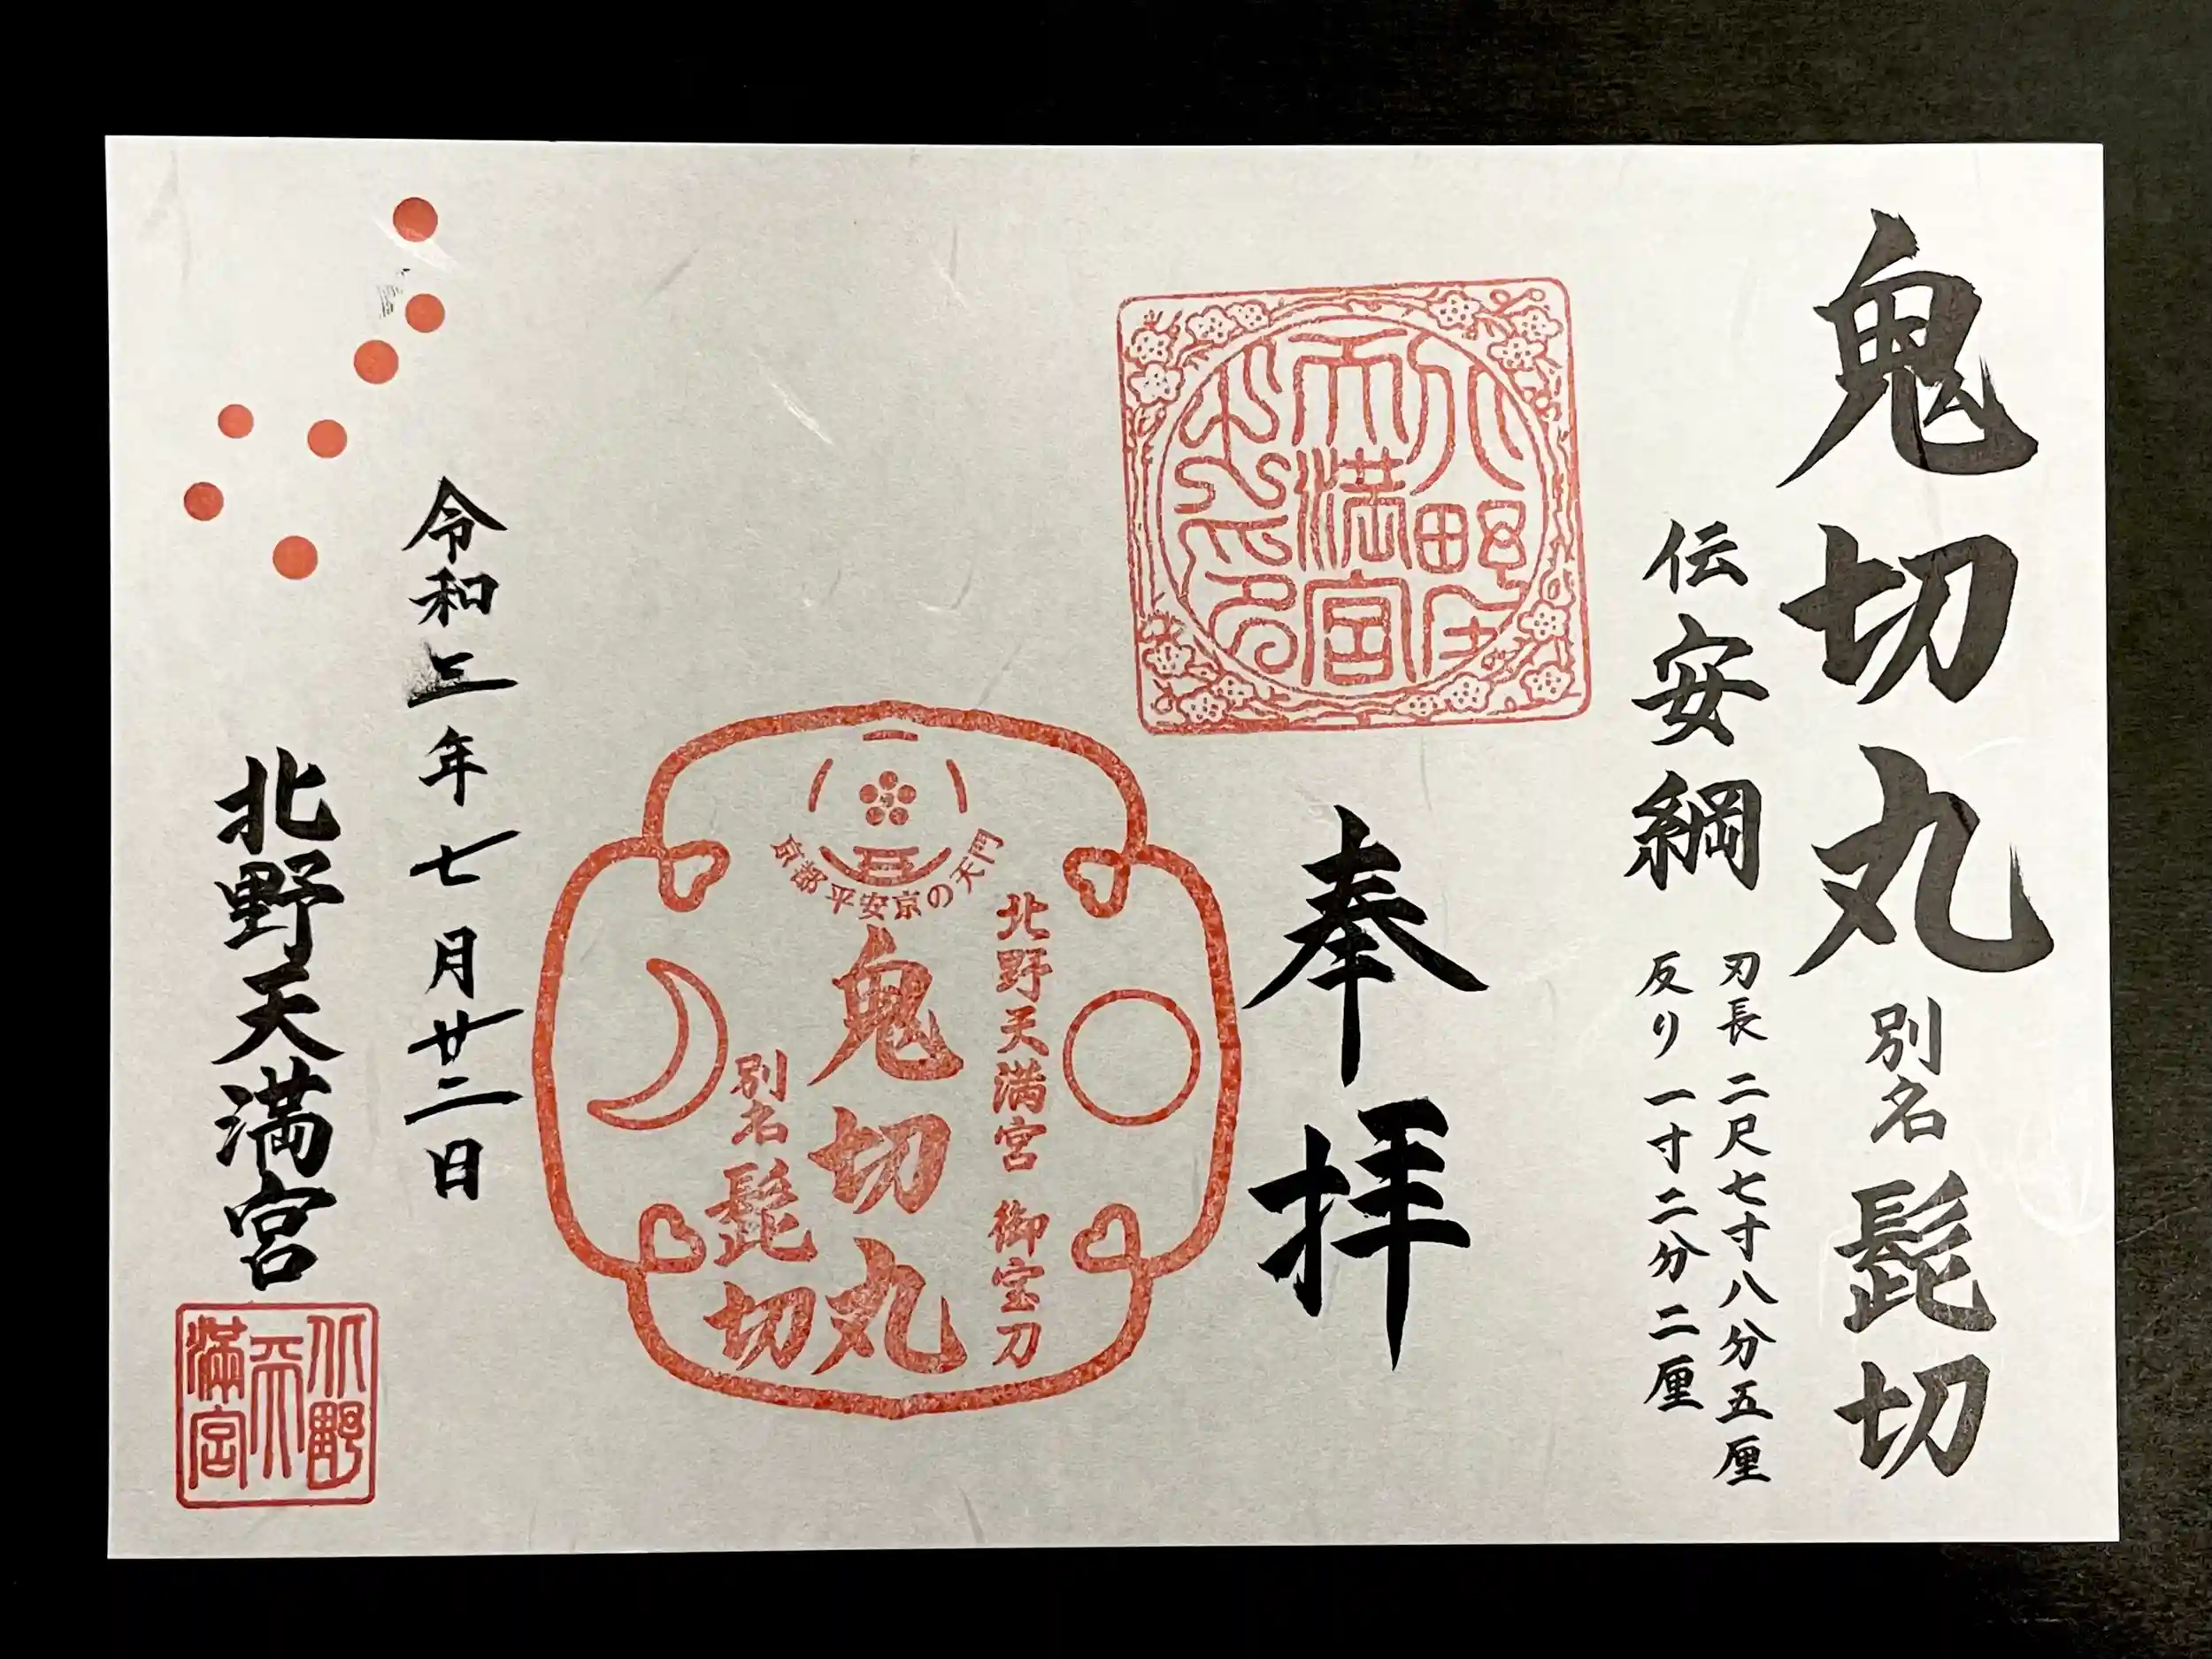 鬼切丸 別名 髭切
伝 安綱
刃長 二尺七寸八分五厘
反り 一寸二分二厘
奉拝
京都 平安京の天門
北野天満宮 御宝刀
鬼切丸
別名 髭切
令和三年七月廿二日
北野天満宮
北野天満宮